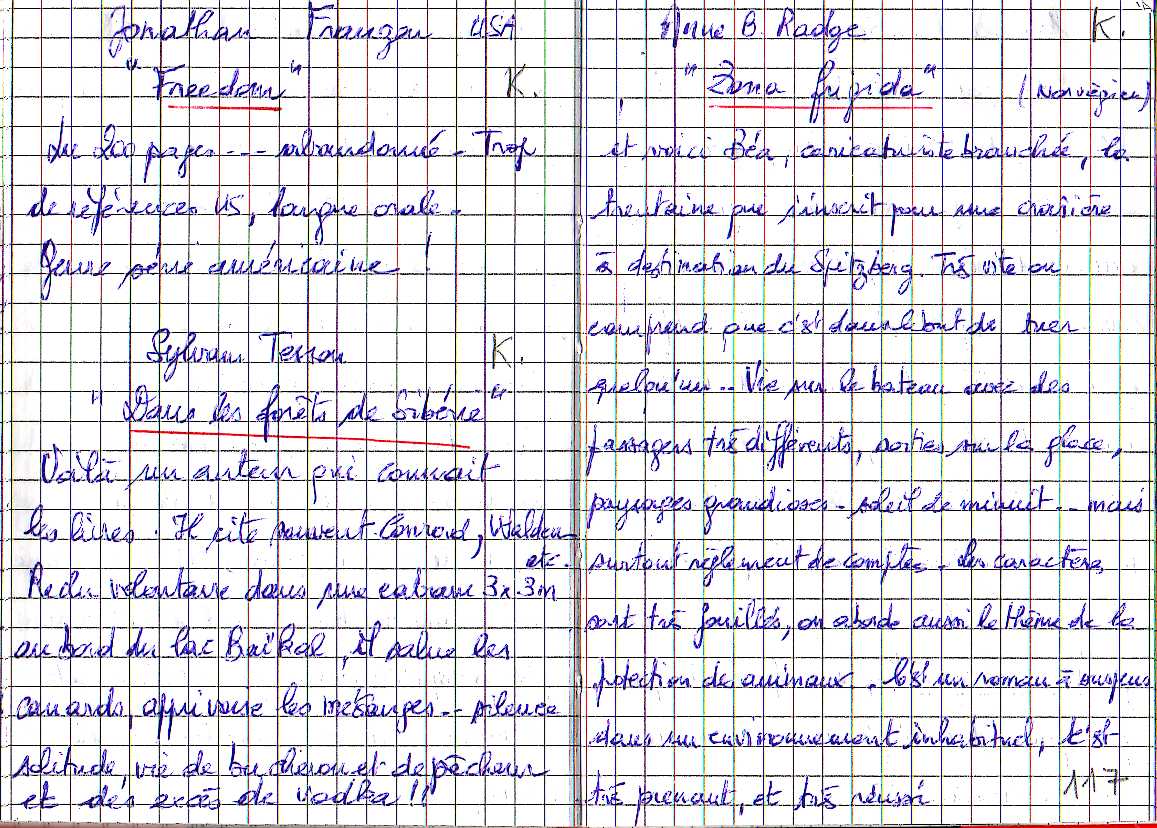 Jonathan Franzen USA
"Freedom" K.
Lu 200 pages --- abandonné - Trop
de références US, langue orale -
Genre série américaine !
Sylvain Tesson K.
"Dans les forêts de Sibérie"
Voilà un auteur qui connait
les livres. Il cite souvent Conrad, Walden
etc.
Reclu volontaire dans une cabane 3x3m
au bord du lac Baïkal, il salue les
canards, apprivoise les mésanges -- silence
solitude, vie de bucheron et de pêcheur
et des excès de vodka !!
Anne B. Radge K.
"Zona frigida" (Norvégien)
et voici Béa, caricaturiste branchée, la
trentaine que s'inscrit pour une croisière
à destination du Spitzberg. Très vite on
comprend que c'est dans le but de tuer
quelqu'un -- Vie sur le bateau avec des
passagers très différents, sorties sur la glace,
paysages grandioses - soleil de minuit -- mais
surtout règlement de comptes - Les caractères
sont très fouillés, on aborde aussi le thème de la
potection des animaux. C'est un roman à suspens
dans un environnement inhabituel, c'est
très prenant, et très réussi
117